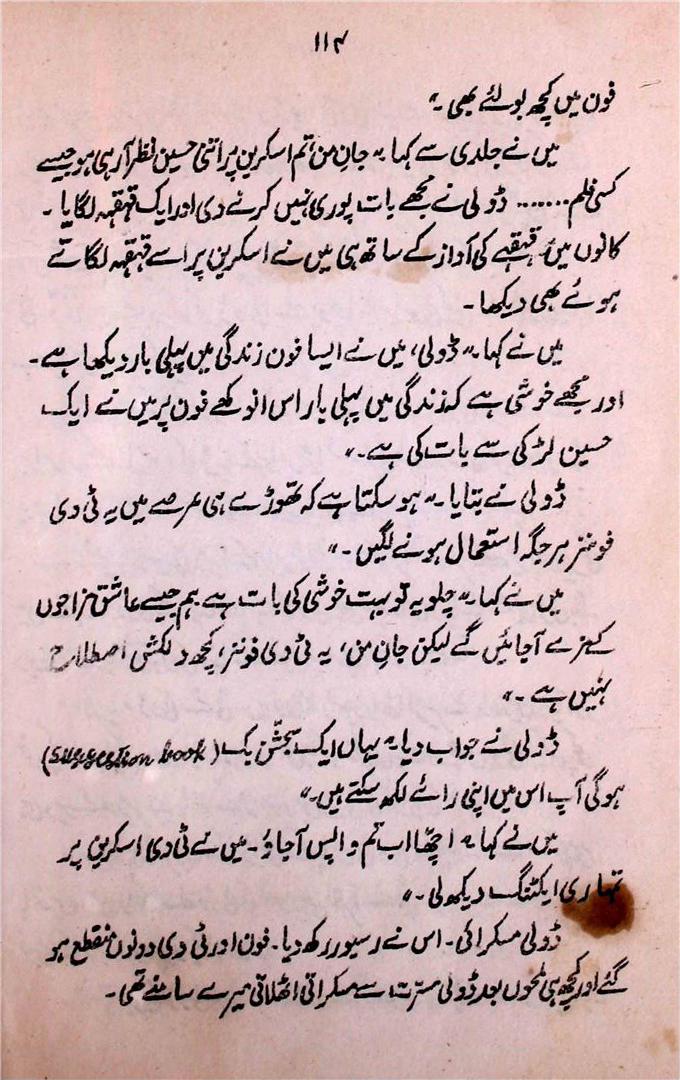 ۱۱۴
فون میں کچھ بولئے بھی۔"
میں نے جلدی سے کہا۔" جانِ من، تم اسکرین پر اتنی حسین نظر آرہی ہو جیسے
کسی فلم....... ڈولی نے مجھے بات پوری نہیں کرنے دی اور ایک قہقہہ لگایا۔
کانوں میں قہقہے کی آواز کے ساتھ ہی میں نے اسکرین پر اسے قہقہہ لگاتے
ہوئے بھی دیکھا۔
میں نے کہا۔" ڈولی، میں نے ایسا فون زندگی میں پہلی بار دیکھا ہے۔
اور مجھے خوشی ہے کہ زندگی میں پہلی بار اس انوکھے فون پر میں نے ایک
حسین لڑکی سے بات کی ہے۔"
ڈولی نے بتایا۔" ہو سکتا ہے کہ تھوڑے ہی عرصے میں یہ ٹی وی
فونز ہر جگہ استعمال ہونے لگیں۔"
میں نے کہا۔" چلو یہ تو بہت خوشی کی بات ہے ہم جیسے عاشق مزاجوں
کے مزے آجائیں گے لیکن جانِ من، یہ ٹی وی فونز، کچھ دلکش اصطلاح
نہیں ہے۔"
ڈولی نے جواب دیا۔" یہاں ایک سجشن بک (suggestion book)
ہوگی آپ اس میں اپنی رائے لکھ سکتے ہیں۔"
میں نے کہا۔" اچھا اب تم واپس آجاؤ۔ میں نے ٹی وی اسکرین پر
تمہاری ایکٹنگ دیکھ لی۔"
ڈولی مسکرائی۔ اس نے رسیور رکھ دیا۔ فون اور ٹی وی دونوں منقطع ہو
گئے اور کچھ ہی لمحوں بعد ڈولی مسرت سے مسکراتی اٹھلاتی میرے سامنے تھی۔